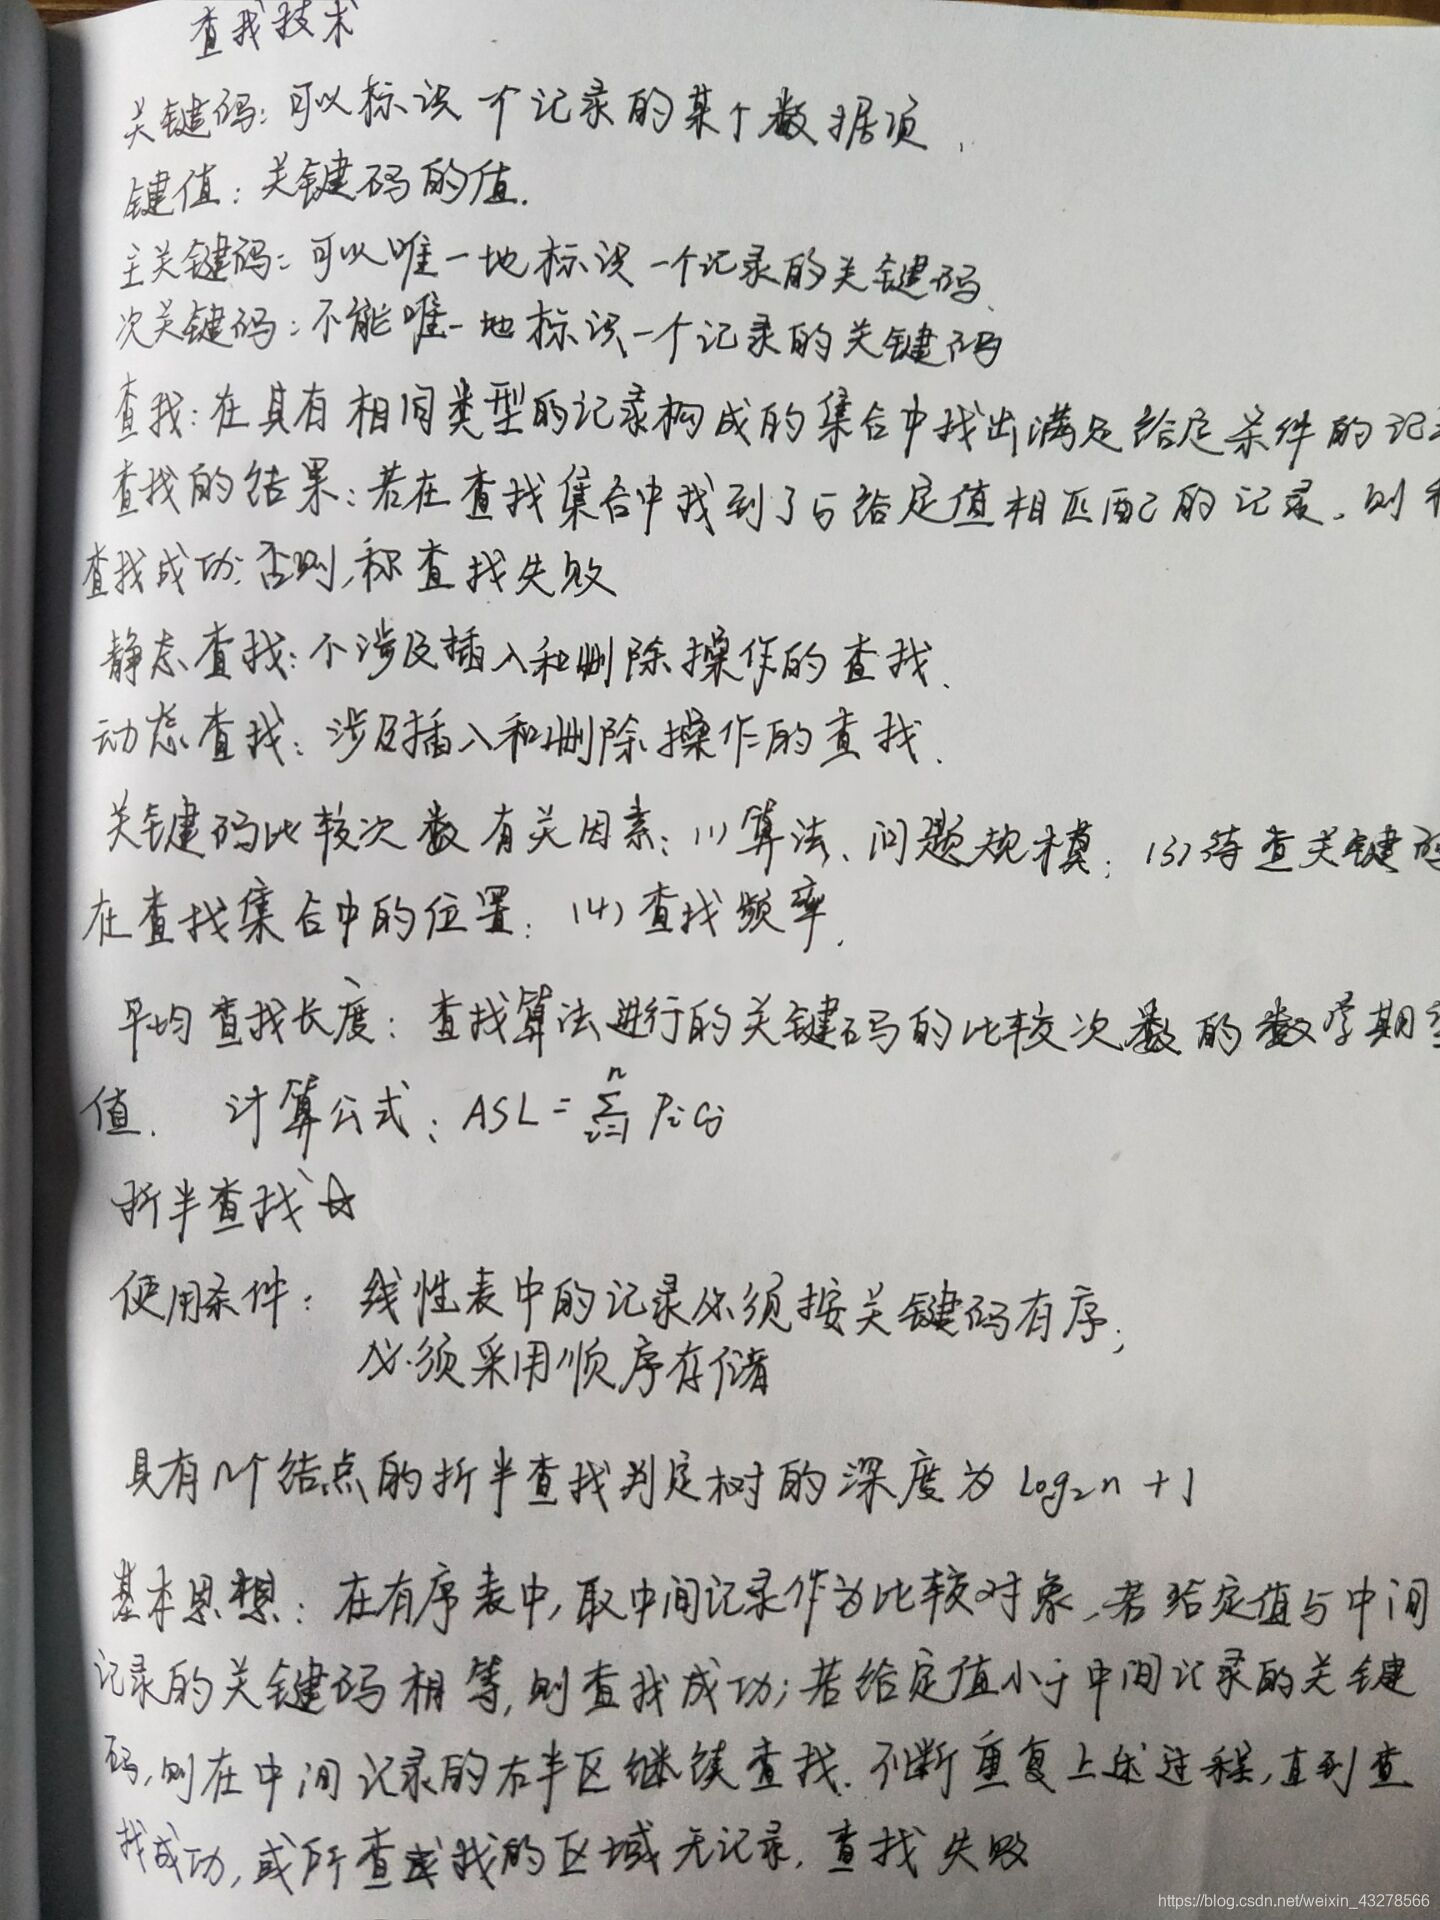 查找技术
关键码：可以标识一个记录的某个数据项.
键值：关键码的值.
主关键码：可以唯一地标识一个记录的关键码.
次关键码：不能唯一地标识一个记录的关键码
查找：在具有相同类型的记录构成的集合中找出满足给定条件的记
查找的结果：若在查找集合中找到了与给定值相匹配的记录，则
查找成功；否则，称查找失败
静态查找：不涉及插入和删除操作的查找.
动态查找：涉及插入和删除操作的查找.
关键码比较次数有关因素：(1)算法、问题规模；(3)待查关键码
在查找集合中的位置；(4)查找频率.
平均查找长度：查找算法进行的关键码的比较次数的数学期望
值. 计算公式：ASL = ∑ⁿᵢ₌₁ pᵢcⱼ
折半查找☆
使用条件：线性表中的记录必须按关键码有序；
必须采用顺序存储
具有n个结点的折半查找判定树的深度为 log₂n + 1
基本思想：在有序表中，取中间记录作为比较对象，若给定值与中间
记录的关键码相等，则查找成功；若给定值小于中间记录的关键
码，则在中间记录的右半区继续查找.不断重复上述过程，直到查
找成功，或所查找的区域无记录，查找失败
https://blog.csdn.net/weixin_43278566